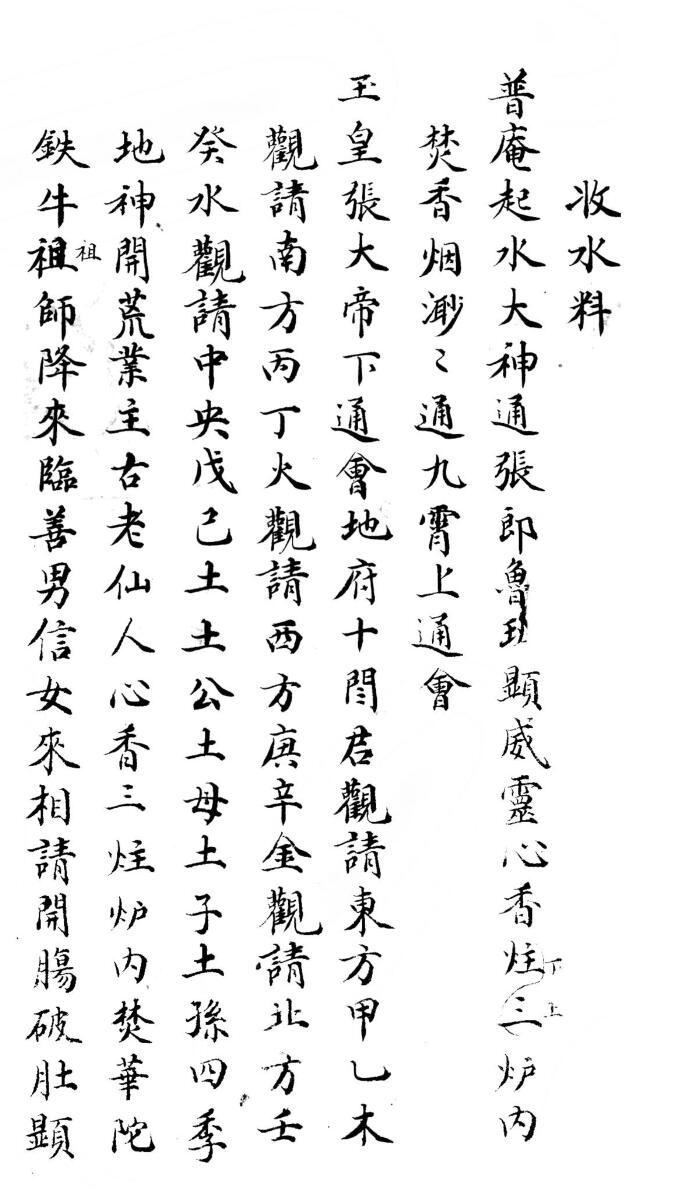 收水料
普庵起水大神通張郎魯班顕威靈心香炷三炉内
下
上
焚香烟渺〻通九霄上通會
玉皇張大帝下通會地府十閻君觀請東方甲乙木
觀請南方丙丁火觀請西方庚辛金觀請北方壬
癸水觀請中央戊己土土公土母土子土孫四季
地神開荒業主古老仙人心香三炷炉内焚華陀
鉄牛祖師降來臨善男信女來相請開腸破肚顕
祖